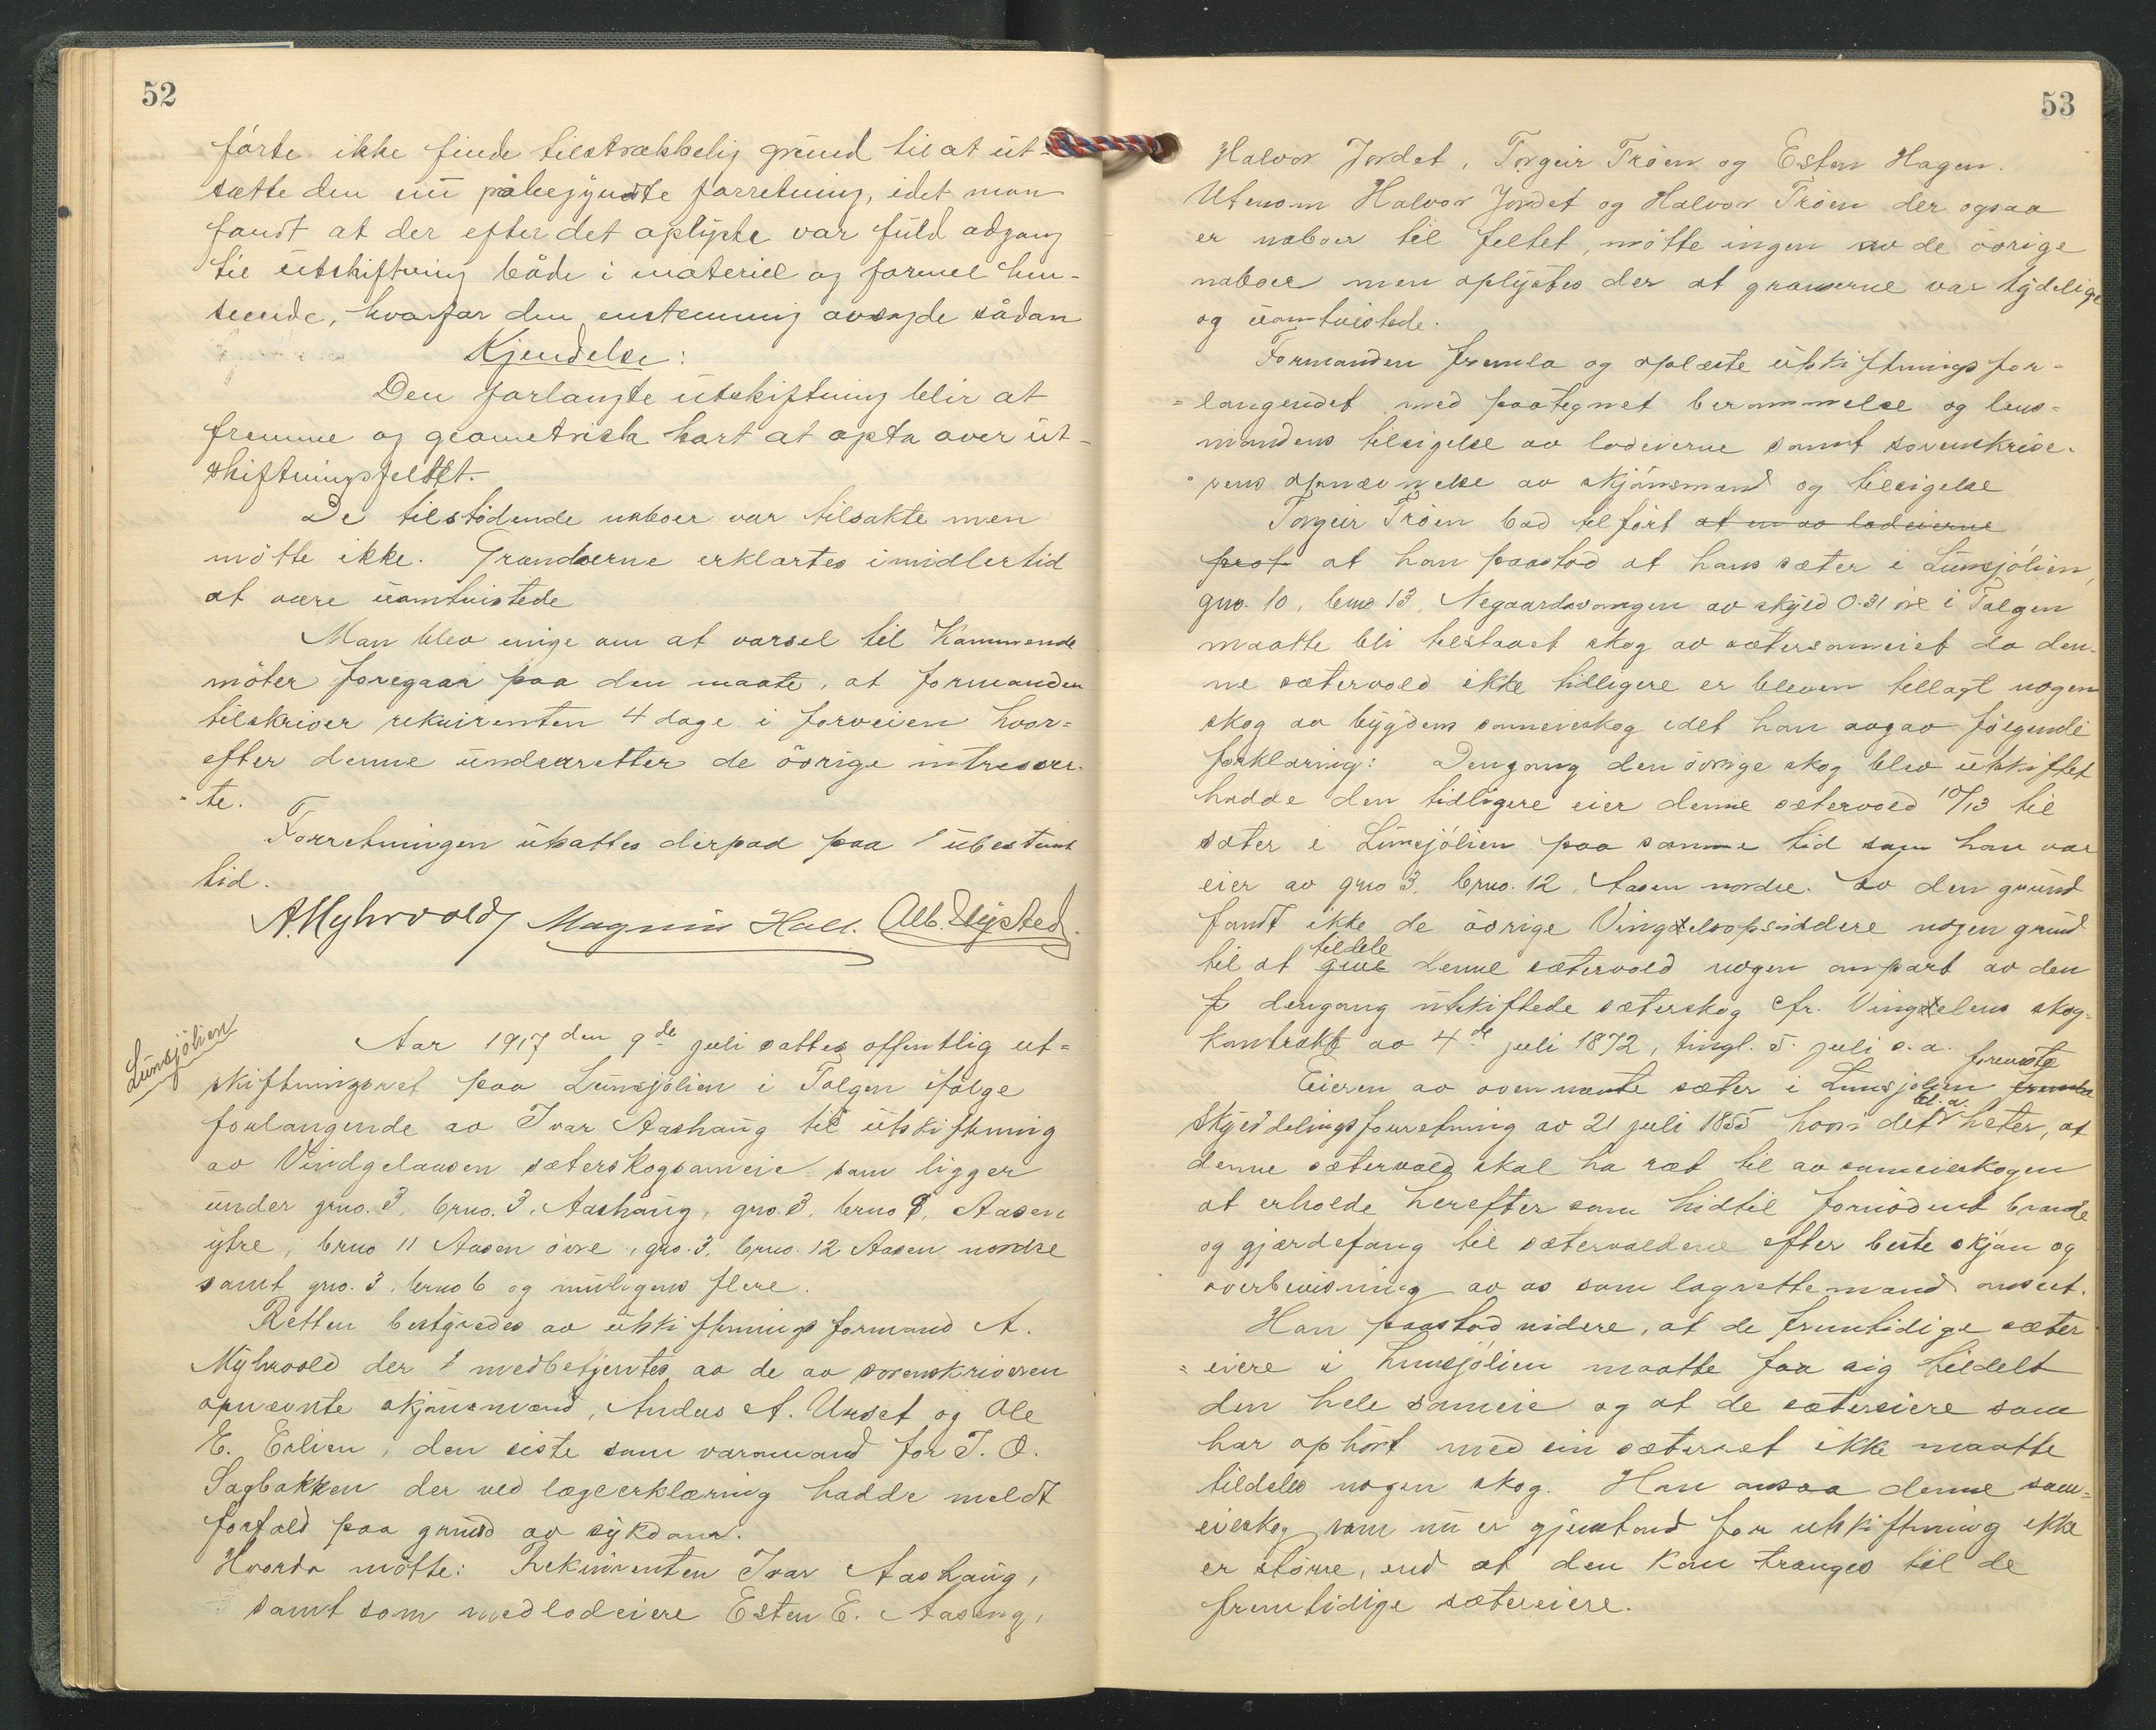 52
førte ikke finde tilstrækkelig grund til at ut-
sætte den nu påbegyndte forretning, idet man
fandt at der efter det oplyste var fuld adgang
til utskiftning både i materiel og formel hen-
seende, hvorfor den enstemmig avsagde sådan
Kjendelse:
Den forlangte utskiftning blir at
fremme og geometrisk kart at opta over ut-
skiftningsfeltet.
De tilstødende naboer var tilsakte men
møtte ikke. Grændserne erklærtes imidlertid
at være uomtvistede
Man blev enige om at varsel til kommende
møter foregaar paa den maate, at formanden
tilskriver rekvirenten 4 dage i forveien hvor-
efter denne underretter de øvrige interesser-
te.
Forretningen utsattes derpaa paa ubestemt
tid.
A. Myhrvold Magnus Hall. Alb. Elgsted.
Lunsjølien
Aar 1917 den 9de juli sattes offentlig ut-
skiftningsret paa Lunsjølien i Tolgen ifølge
forlangende av Ivar Aashaug til utskiftning
av Vindgelaasen sæterskogsameie som ligger
under gno. 3, bruo. 3, Aashaug, gno. 3, bruo 9, Aasen
ytre, bruo 11 Aasen øvre, gno. 3, bruo. 12 Aasen nordre
samt gno. 3, bruo 6 og muligens flere.
Retten bestyredes av utskiftningsformand A.
Myhrvold der medbetjentes av de av sorenskriveren
opnævnte skjønsmænd, Anders A. Urset og Ole
E. Erlien, den siste som varamand for T. O.
Sagbakken der ved lægeerklæring hadde meldt
forfald paa grund av sykdom.
Hvorda møtte: Rekvirenten Ivar Aashaug,
samt som medlodeiere Esten E. Aaseng,
53
Halvor Jordet, Torgeir Trøen og Esten Hagen.
Utenom Halvor Jordet og Halvor Trøen der ogsaa
er naboer til feltet, møtte ingen av de øvrige
naboer men oplystes der at grænserne var tydelige
og uomtvistede.
Formanden fremla og oplæste utskiftningsfor-
langendet med paategnet berammelse og lens-
mandens tilsigelse av lodeierne samt sorenskrive-
rens opnævnelse av skjønsmænd og tilsigelse
Torgeir Trøen bad tilført at en av lodeierne
prot at han paastod at hans sæter i Lunsjølien,
gno. 10, bruo 13, Negaardsvangen av skyld 0.31 øre i Tolgen
maatte bli tilstaaet skog av sætersameiet da den-
ne sætervold ikke tidligere er bleven tillagt nogen
skog av bygdens sameieskog idet han avgav følgende
forklaring: Dengang den øvrige skog blev utskiftet
hadde den tidligere eier denne sætervold 10/13 til
sæter i Lunsjølien paa samme tid som han var
eier av gno 3, bruo. 12, Aasen nordre. Av den grund
fandt ikke de øvrige Vingelsopsiddere nogen grund
til at give tildele denne sætervold nogen anpart av den
dengang utskiftede sæterskog cfr. Vingelens skog-
kontrakt av 4de juli 1872, tingl. 5. juli s.a.
Eieren av ovennævnte sæter i Lunsjølien fremla foreviste
Skylddelingsforretning av 21 juli 1855 hvori det bl. a. heter, at
denne sætervold skal ha ræt til av sameieskogen
at erholde herefter som hidtil fornødent brænde
og gjærdefang til sætervoldene efter beste skjøn og
overbevisning av os som lagrettemænd anseet.
Han paastod videre, at de fremtidige sæter
eiere i Lunsjølien maatte faa sig tildelt
den hele sameie og at de sætereiere som
har ophørt med sin sæterret ikke maatte
tildeles nogen skog. Han ansaa denne sam-
eieskog som nu er gjenstand for utskiftning ikke
er større, end at den kan trænges til de
fremtidige sætereiere.